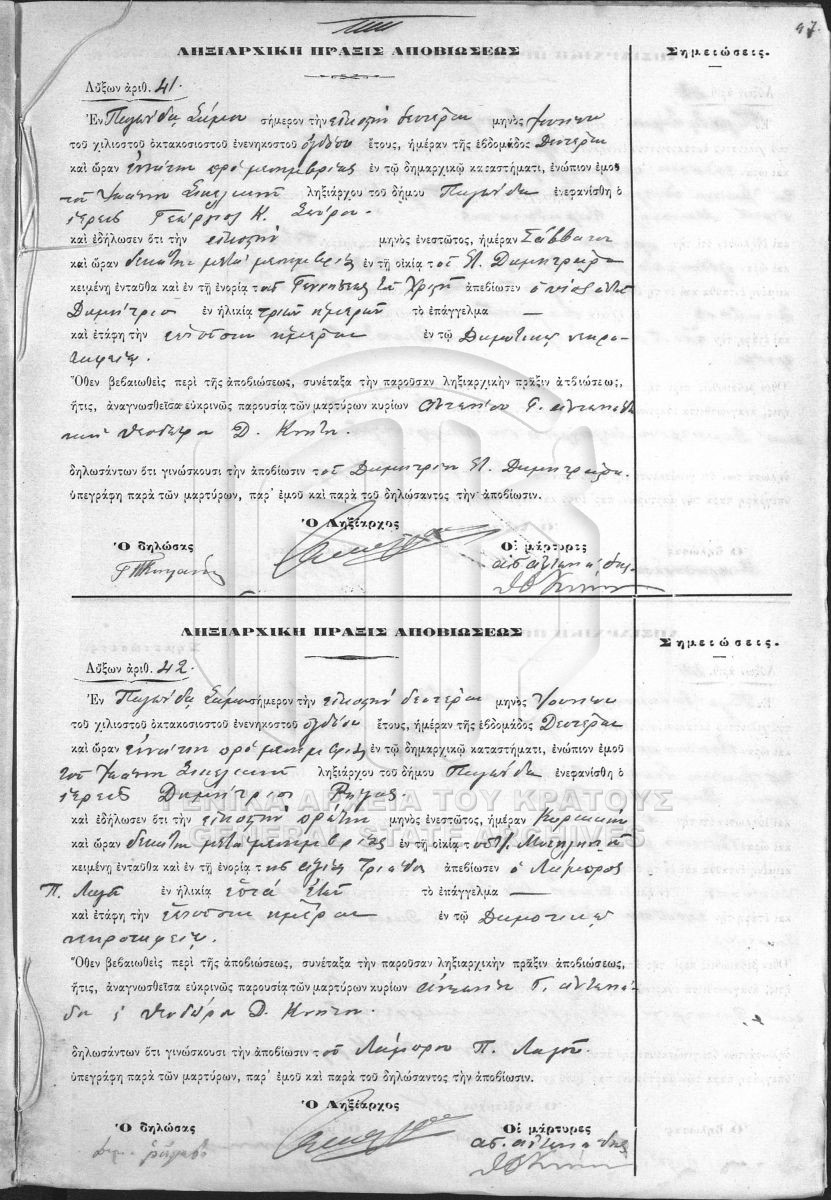 47.
ΛΗΞΙΑΡΧΙΚΗ ΠΡΑΞΙΣ ΑΠΟΒΙΩΣΕΩΣ
Σημειώσεις.
Αὔξων ἀριθ. 41.
Ἐν Παγώνδᾳ Σάμου σήμερον τὴν εἰκοστὴν δευτέραν μηνὸς Ἰουνίου
τοῦ χιλιοστοῦ ὀκτακοσιοστοῦ ἐνενηκοστοῦ ὀγδόου ἔτους, ἡμέραν τῆς ἑβδομάδος Δευτέραν
καὶ ὥραν ἐννάτην πρὸ μεσημβρίας ἐν τῷ δημαρχικῷ καταστήματι, ἐνώπιον ἐμοῦ
τοῦ Ἰωάννη ληξιάρχου τοῦ δήμου Παγώνδα ἐνεφανίσθη ὁ
ἱερεὺς Γεώργιος Κ.
καὶ ἐδήλωσεν ὅτι τὴν εἰκοστὴν μηνὸς ἐνεστῶτος, ἡμέραν Σάββατον
καὶ ὥραν δεκάτην μετὰ μεσημβρίαν ἐν τῇ οἰκίᾳ τοῦ Δημητριάδου
κειμένῃ ἐνταῦθα καὶ ἐν τῇ ἐνορίᾳ τῆς Γεννήσεως τοῦ Χριστοῦ ἀπεβίωσεν ὁ υἱὸς αὐτοῦ
Δημήτριος ἐν ἡλικίᾳ τριῶν ἡμερῶν τὸ ἐπάγγελμα —
καὶ ἐτάφη τὴν ἐπιοῦσαν ἡμέραν ἐν τῷ Δημοτικῷ νεκρο-
ταφείῳ.
Ὅθεν βεβαιωθεὶς περὶ τῆς ἀποβιώσεως, συνέταξα τὴν παροῦσαν ληξιαρχικὴν πρᾶξιν ἀποβιώσεως,
ἥτις, ἀναγνωσθεῖσα εὐκρινῶς παρουσίᾳ τῶν μαρτύρων κυρίων Γ.
καὶ Θεοδώρου Δ.
δηλωσάντων ὅτι γινώσκουσι τὴν ἀποβίωσιν τοῦ Δημητρίου Δημητριάδου.
ὑπεγράφη παρὰ τῶν μαρτύρων, παρ' ἐμοῦ καὶ παρὰ τοῦ δηλώσαντος τὴν ἀποβίωσιν.
Ὁ Ληξίαρχος
Ὁ δηλώσας
Οἱ μάρτυρες
ΛΗΞΙΑΡΧΙΚΗ ΠΡΑΞΙΣ ΑΠΟΒΙΩΣΕΩΣ
Σημειώσεις.
Αὔξων ἀριθ. 42.
Ἐν Παγώνδᾳ Σάμου σήμερον τὴν εἰκοστὴν δευτέραν μηνὸς Ἰουνίου
τοῦ χιλιοστοῦ ὀκτακοσιοστοῦ ἐνενηκοστοῦ ὀγδόου ἔτους, ἡμέραν τῆς ἑβδομάδος Δευτέραν
καὶ ὥραν ἐννάτην πρὸ μεσημβρίας ἐν τῷ δημαρχικῷ καταστήματι, ἐνώπιον ἐμοῦ
τοῦ Ἰωάννη ληξιάρχου τοῦ δήμου Παγώνδα ἐνεφανίσθη ὁ
ἱερεὺς Δημήτριος Ῥήγας
ΓΕΝΙΚΑ ΑΡΧΕΙΑ ΤΟΥ ΚΡΑΤΟΥΣ
καὶ ἐδήλωσεν ὅτι τὴν εἰκοστὴν πρώτην μηνὸς ἐνεστῶτος, ἡμέραν Κυριακὴν
GENERAL STATE ARCHIVES
καὶ ὥραν δεκάτην μετὰ μεσημβρίας ἐν τῇ οἰκίᾳ τοῦ
κειμένῃ ἐνταῦθα καὶ ἐν τῇ ἐνορίᾳ τῆς ἁγίας Τριάδος ἀπεβίωσεν ὁ Λάμπρος
Π. Λαγοῦ ἐν ἡλικίᾳ ἑπτὰ ἐτῶν τὸ ἐπάγγελμα —
καὶ ἐτάφη τὴν ἐπιοῦσαν ἡμέραν ἐν τῷ Δημοτικῷ
νεκροταφείῳ.
Ὅθεν βεβαιωθεὶς περὶ τῆς ἀποβιώσεως, συνέταξα τὴν παροῦσαν ληξιαρχικὴν πρᾶξιν ἀποβιώσεως,
ἥτις, ἀναγνωσθεῖσα εὐκρινῶς παρουσίᾳ τῶν μαρτύρων κυρίων Γ.
Θεοδώρου Δ.
δηλωσάντων ὅτι γινώσκουσι τὴν ἀποβίωσιν τοῦ Λάμπρου Π. Λαγοῦ.
ὑπεγράφη παρὰ τῶν μαρτύρων, παρ' ἐμοῦ καὶ παρὰ τοῦ δηλώσαντος τὴν ἀποβίωσιν.
Ὁ Ληξίαρχος
Ὁ δηλώσας
Οἱ μάρτυρες